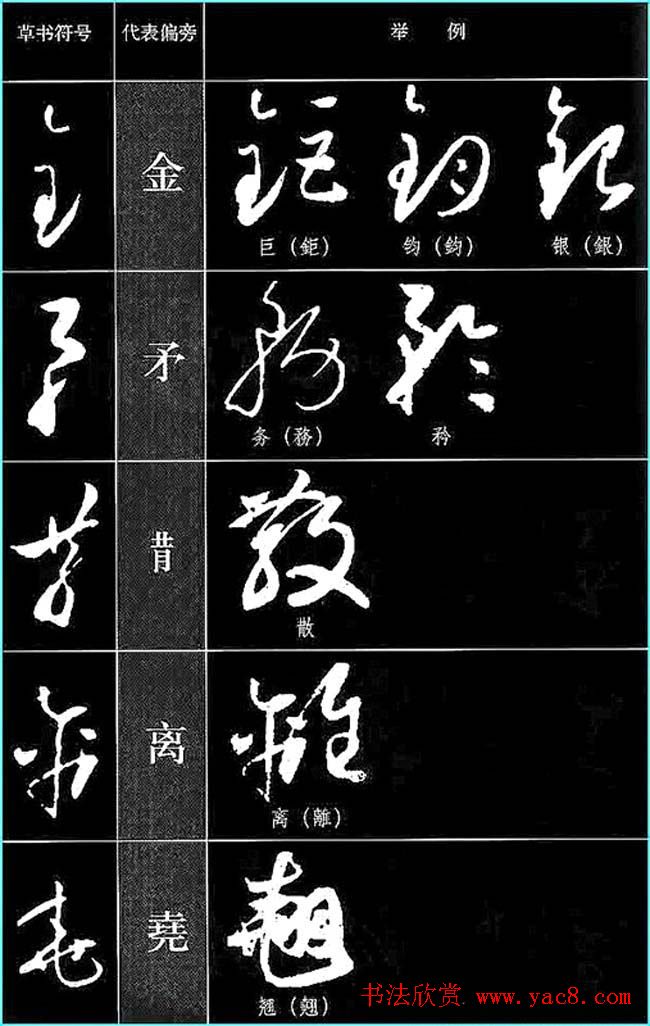 草书符号 代表偏旁 举 例
金 鉅 鈞 銀
巨（鉅） 钧（鈞） 银（銀）
矛 務 矜
务（務） 矜
散
散
离 離
离（離）
堯 翹
翘（翹）
书法欣赏 www.yac8.com